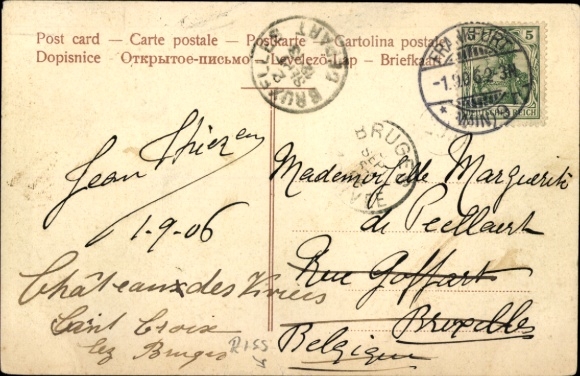 Post card — Carte postale — Postkarte — Cartolina postale
Dopisnice — Открытое-письмо — Levelező-Lap — Briefkaart
5
FRANKFURT
-1.9.06.
BRUXELLES
DÉPART
BRUGGE
SEPT
REICH
Jean
1-9-06
Château des Viviers
Saint Croix
lez Bruges
R155
Mademoiselle Marguerite
de Peellaert
Rue Goffart
Bruxelles
Belgique